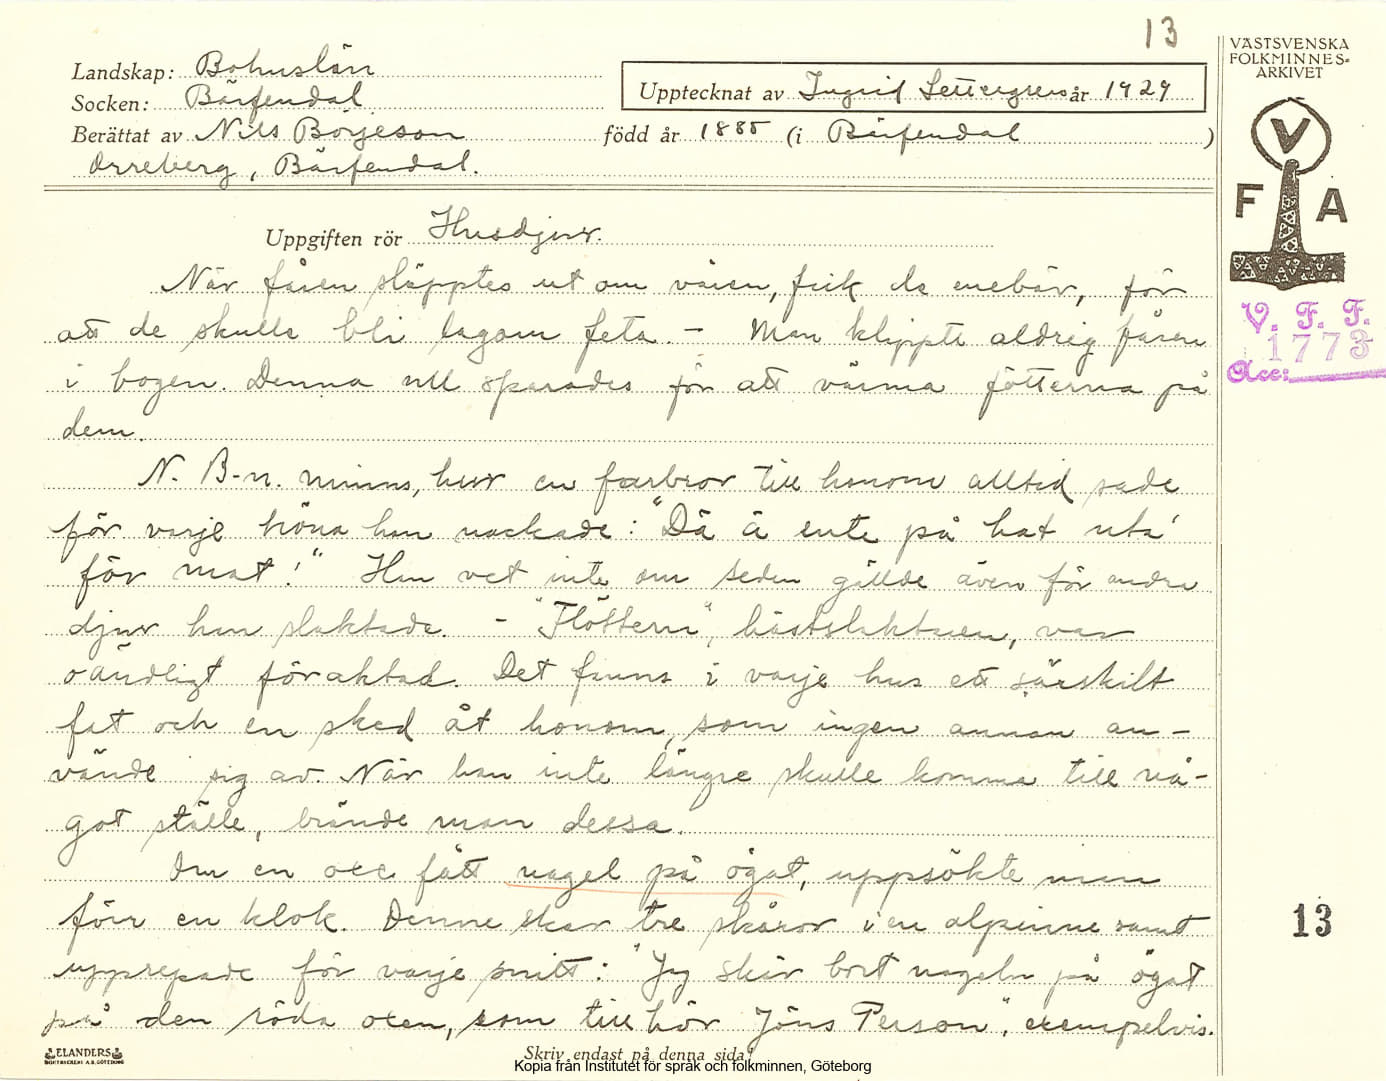 13
Landskap: Bohuslän
Socken: Bärfendal
Upptecknat av Ingrid Settergren år 1929
Berättat av Nils Börjeson född år 1885 (i Bärfendal )
Orreberg, Bärfendal.
Uppgiften rör Husdjur.
När fåren släpptes ut om våren, fick de enebär, för
att de skulle bli lagom feta. - Man klippte aldrig fåren
i bogen. Denna ull sparades för att värma fötterna på
dem.
N. B-n. minns, hur en farbror till honom alltid sade
för varje höna han nackade: "Dä ä ente på hat uta'
för mat!" Han vet inte om seden gällde även för andra
djur han slaktade. - "Flöttern", hästslaktaren, var
oändligt föraktad. Det fanns i varje hus ett särskilt
fat och en sked åt honom, som ingen annan an-
vände sig av. När han inte längre skulle komma till nå-
got ställe, brände man dessa.
Om en oxe fått nagel på ögat, uppsökte man
förr en klok. Denne skar tre skåror i en alpinne samt
upprepade för varje snitt: "Jag skär bort nageln på ögat
på den röda oxen, som tillhör Jöns Person", exempelvis.
Skriv endast på denna sida!
ELANDERS
BOKTRYCKERI A.B. GÖTEBORG
Kopia från Institutet för språk och folkminnen, Göteborg
VÄSTSVENSKA
FOLKMINNES-
ARKIVET
V
F A
V. F. F.
1773
Acc:
13